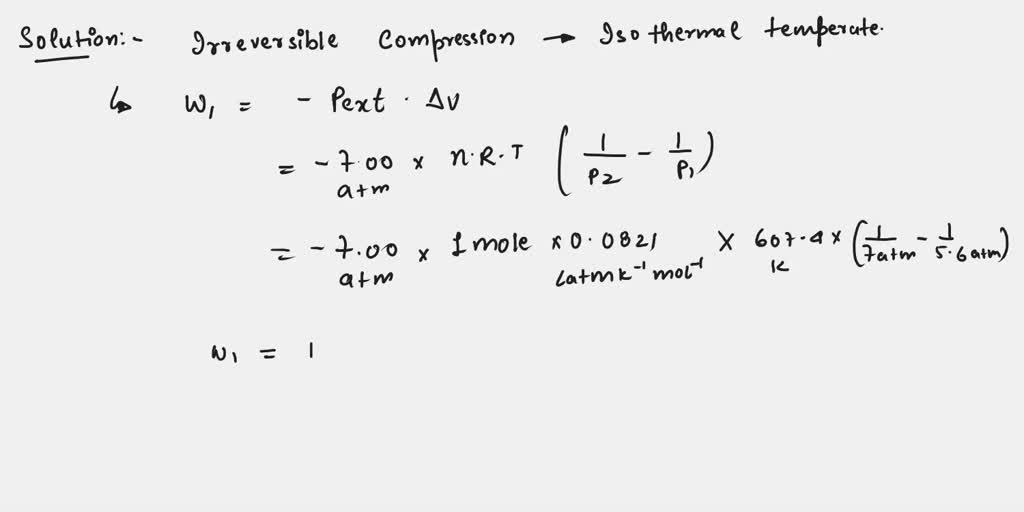 Solution:- Irreversible Compression → Isothermal temperate.
↳ W₁ = - Pext · ΔV
= - 7.00 atm × n.R.T (1/P2 - 1/P₁)
= - 7.00 atm × 1 mole × 0.0821 Latmk⁻¹ mol⁻¹ × 607.4 k × (1/7atm - 1/5.6atm)
W₁ = 1